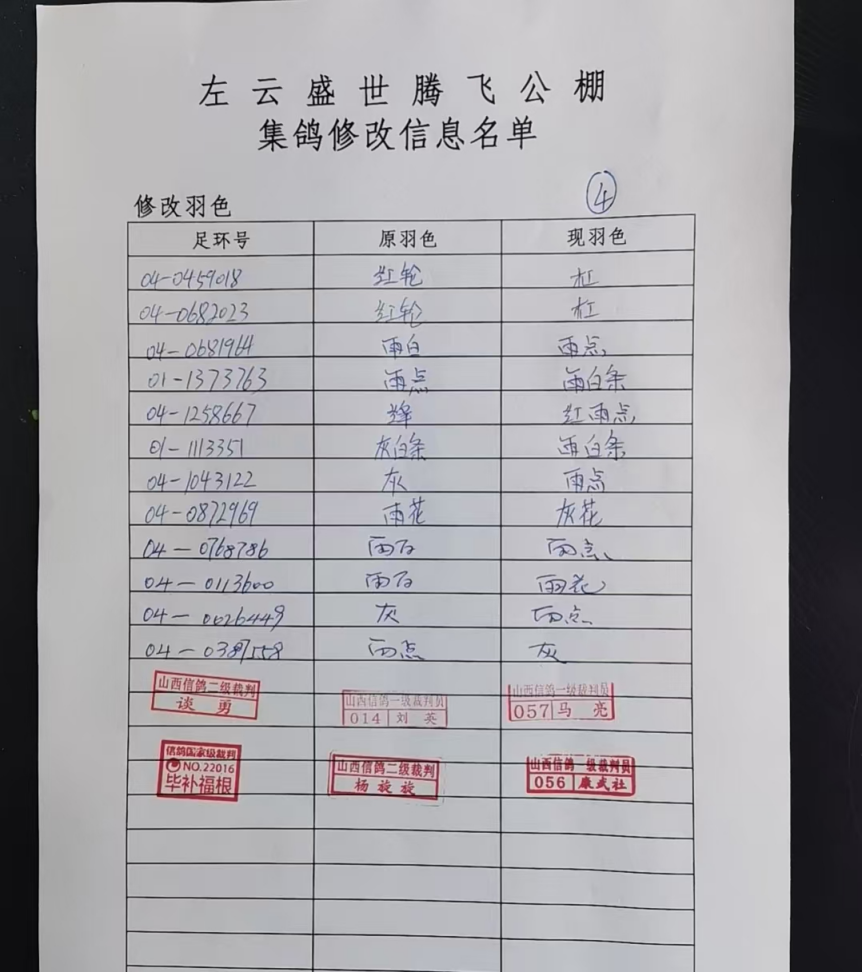 左云盛世腾飞公棚
集鸽修改信息名单
修改羽色 ④
足环号 原羽色 现羽色
04-0459018 红轮 杠
04-0682023 红轮 杠
04-0681964 雨白 雨点
01-1373763 雨点 雨白条
04-1258667 绛 红雨点
01-1113351 灰白条 雨白条
04-1043122 灰 雨点
04-0872969 雨花 灰花
04-0768786 雨白 雨点
04-0113600 雨白 雨花
04-0026449 灰 雨点
04-0387558 雨点 灰
山西信鸽二级裁判 山西信鸽一级裁判员 山西信鸽一级裁判员
谈勇 014 刘英 057 马亮
信鸽国家级裁判 山西信鸽二级裁判 山西信鸽一级裁判员
NO.22016 杨旋旋 056 康武社
毕补福根